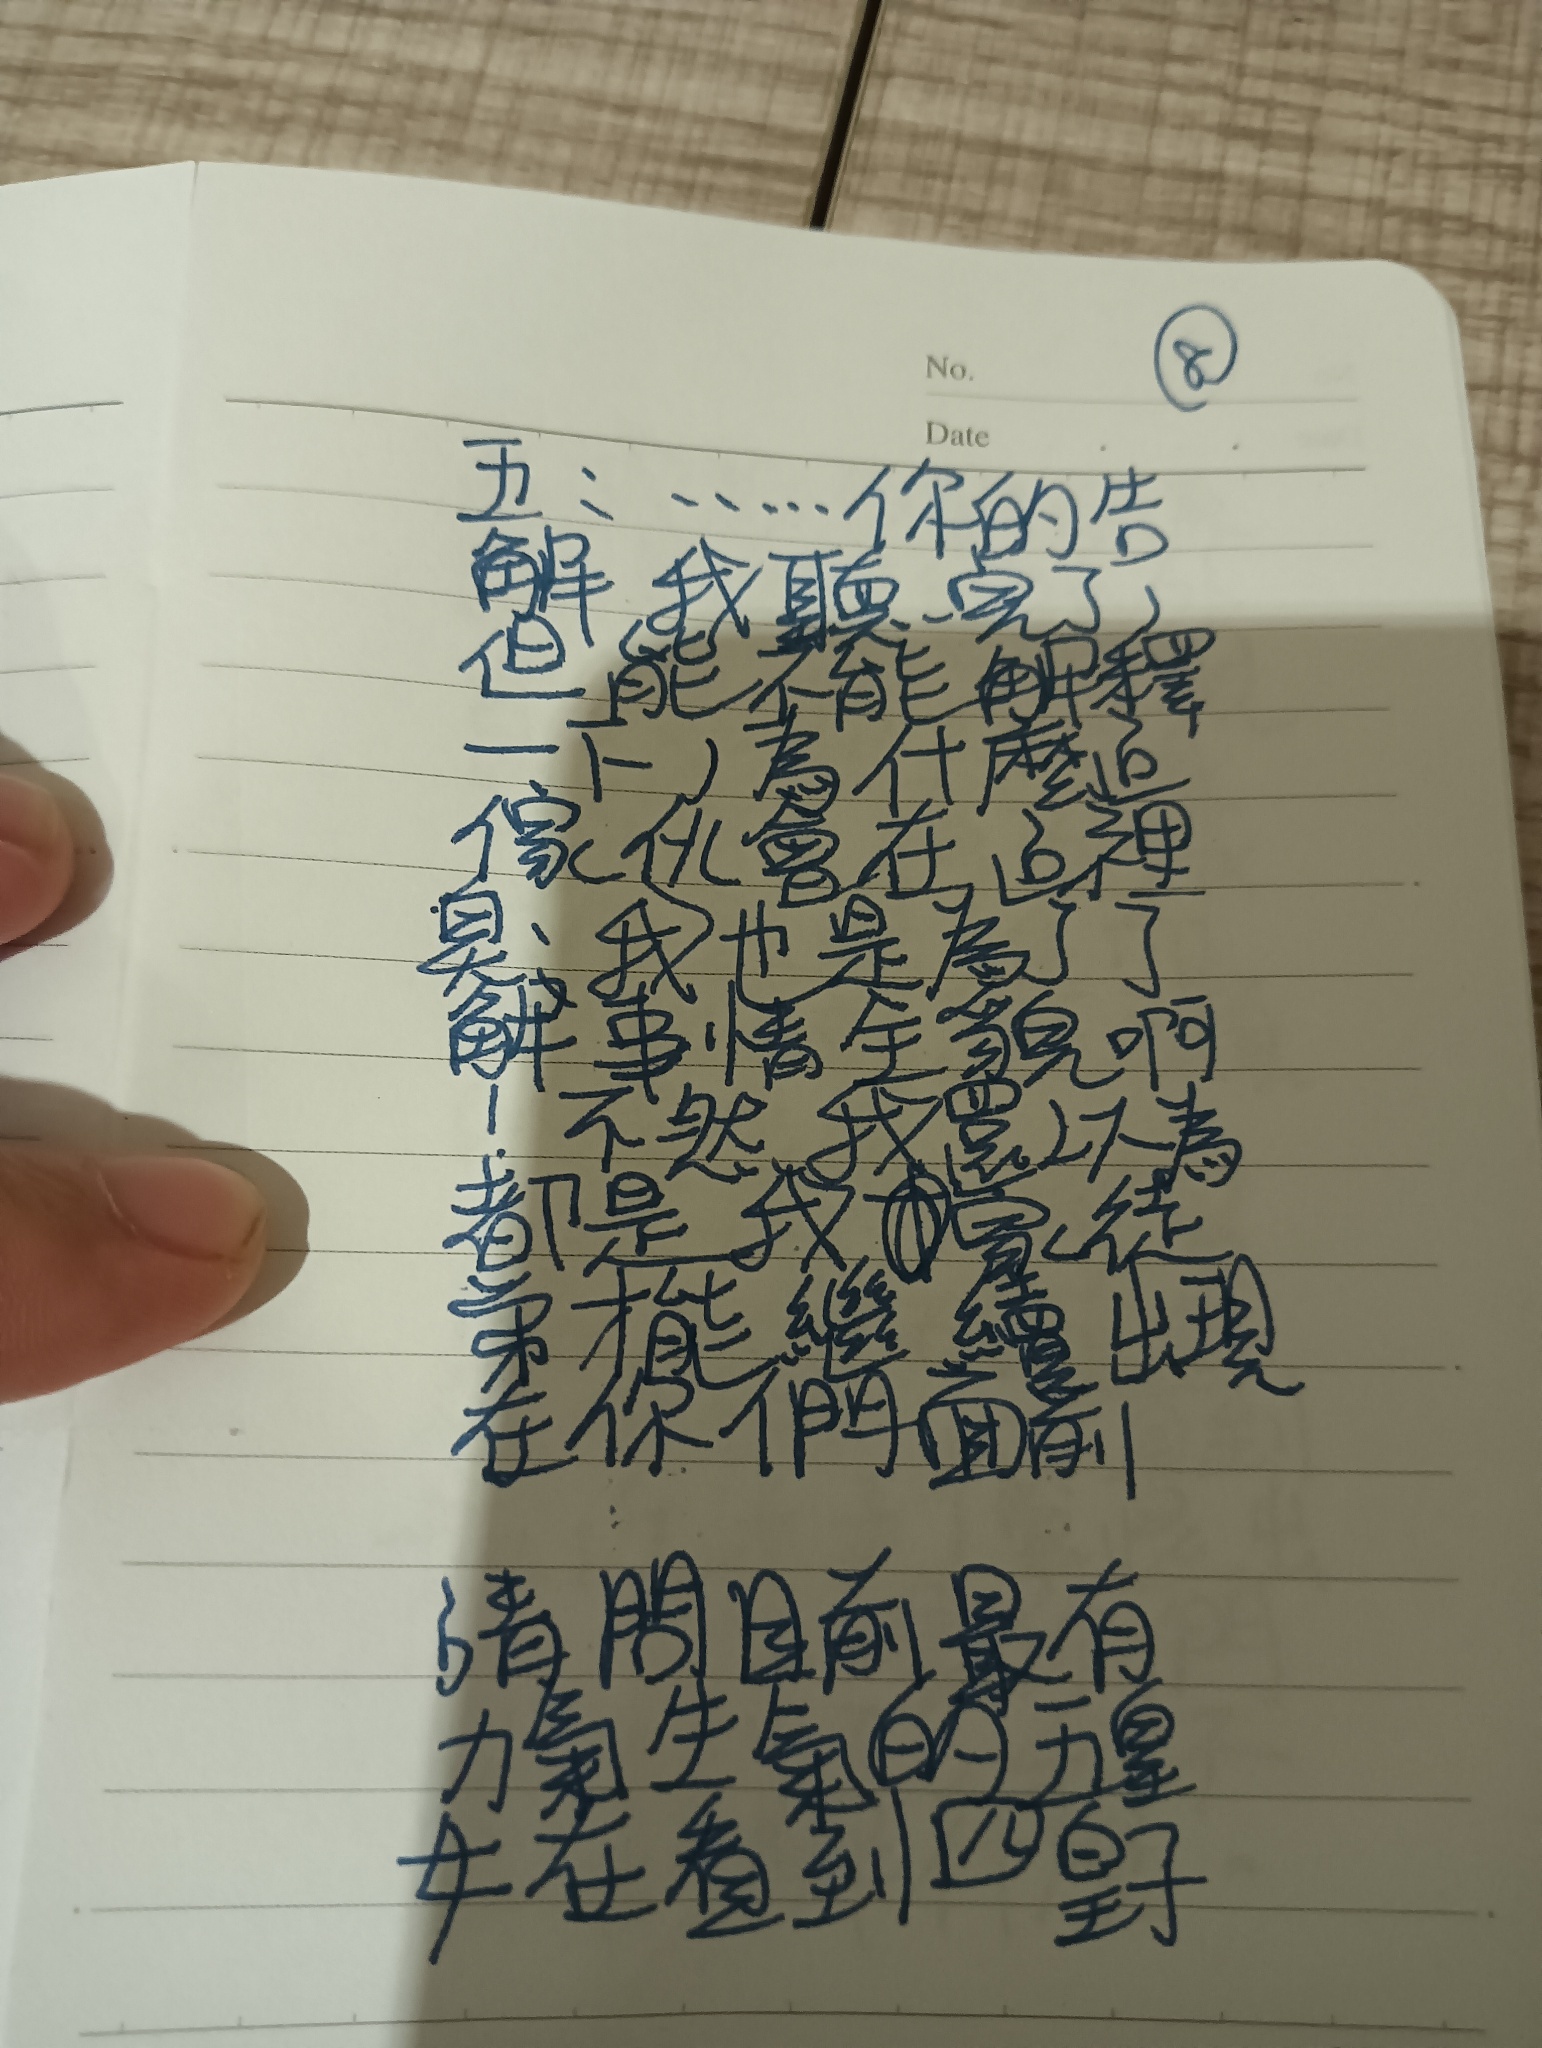 ⑧
No.
Date
五：……你的告
解我聽完了，
但能不能解釋
一下，為什麼這
傢伙會在這裡
昊：我也是為了了
解事情全貌啊
！不然我還以為
都是我罹
才能繼續出現
在你們面前
請問目前最有
力氣生氣的五皇
女在看到四皇子